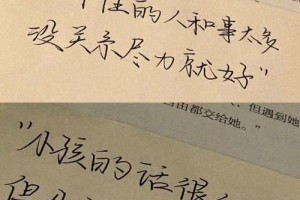 的人和事太多
没关系尽力就好”
但遇到她
由都交给她。”
“小孩的话很